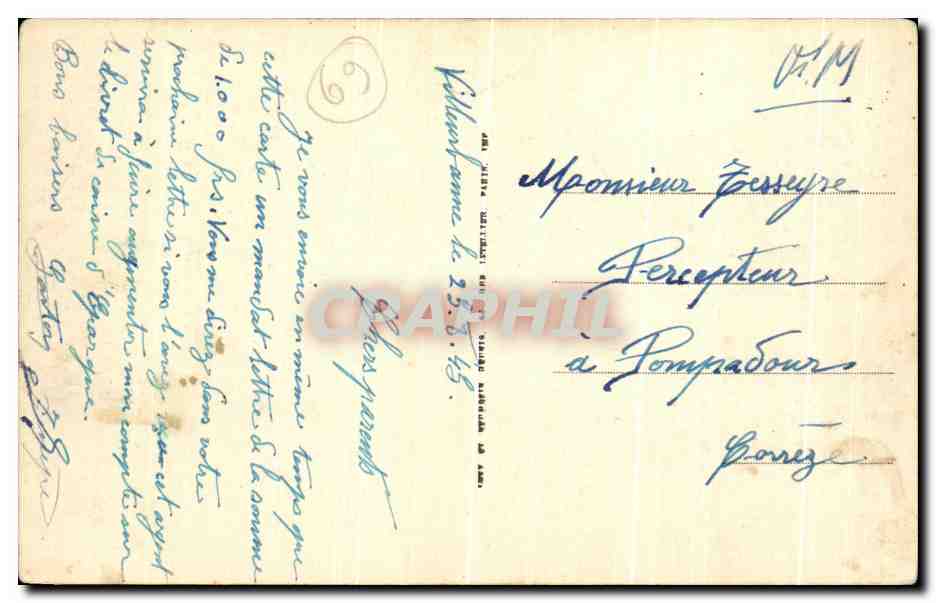 Villeurbanne le 25.8.45.
Chers parents
Je vous envoie en même temps que
cette carte un mandat lettre de la somme
de 1.000 frs. Vous me direz dans votre
prochaine lettre si vous l'avez cet argent
servira à faire augmenter mon compte sur
le livret de caisse d'Epargne.
Bons baisers
69
F.M
Monsieur Tesseyre
Percepteur
à Pompadour
Corrèze
CRAPHIL